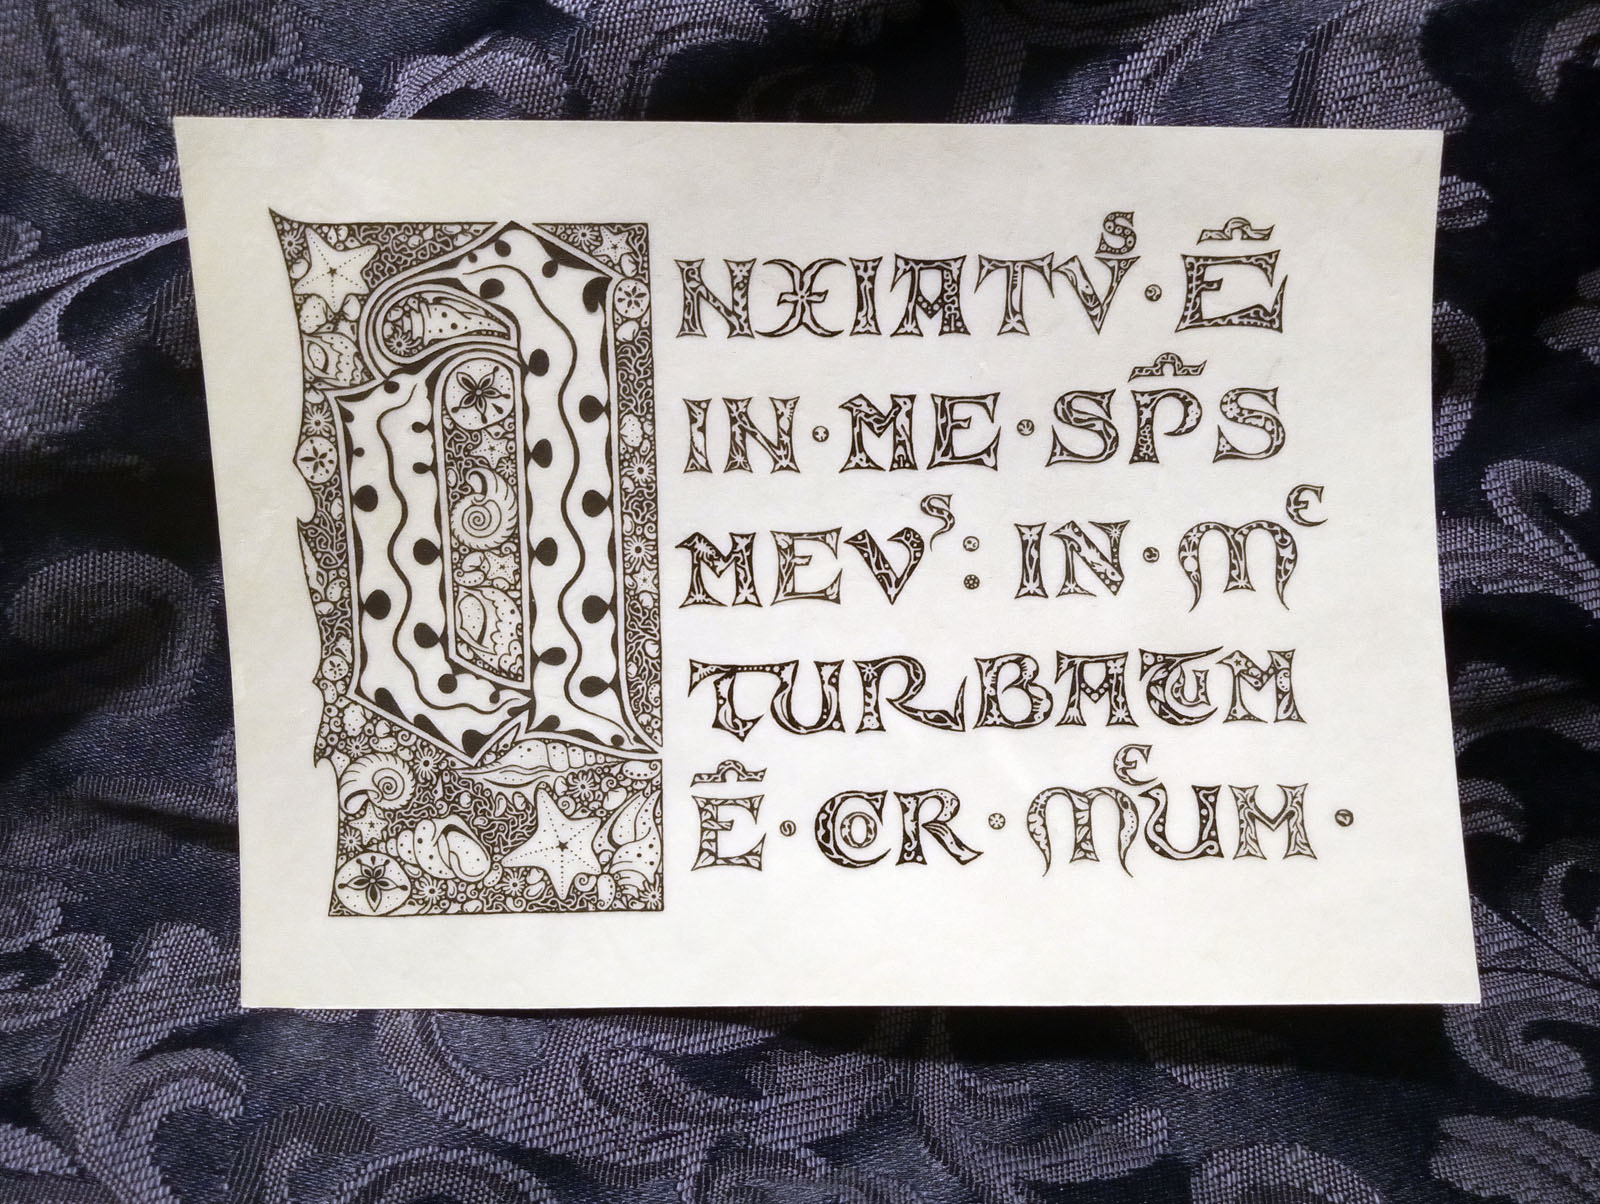 ANXIATVS · Ē
IN · ME · SP̄S
MEVS : IN · ME
TURBATUM
Ē · COR · MEUM ·